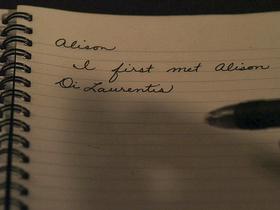 Alison
I first met Alison
Di Laurentis